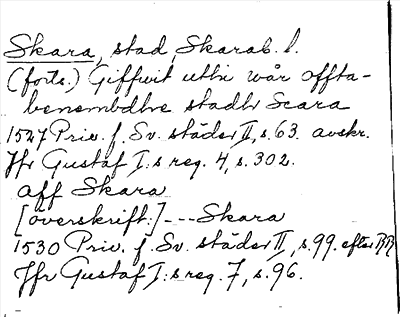 Skara, stad, Skarab. l.
(forts.) Giffwit uthi wår offta-
benembdhe stadhr Scara
1527 Priv. f. Sv. städer II, s. 63. avskr.
Jfr Gustaf I:s reg. 4, s. 302.
aff Skara
[överskrift:] --- Skara
1530 Priv. f. Sv. städer II, s. 99. efter RR
Jfr Gustaf I:s reg. 7, s. 96.